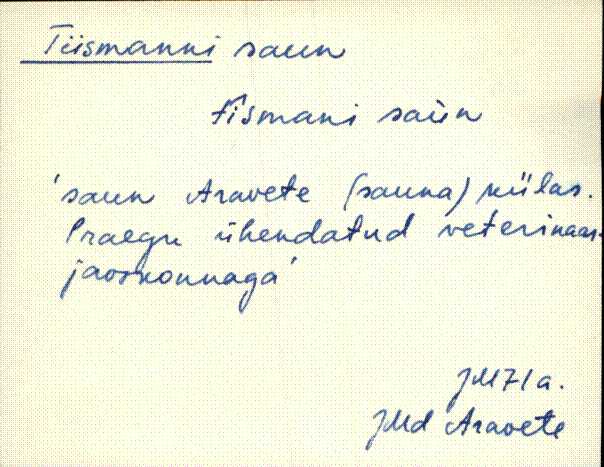 Tiismanni saun
tismani saun
'saun Aravete (sauna) külas.
Praegu ühendatud veterinaar-
jaoskonnaga'
JMd Aravete